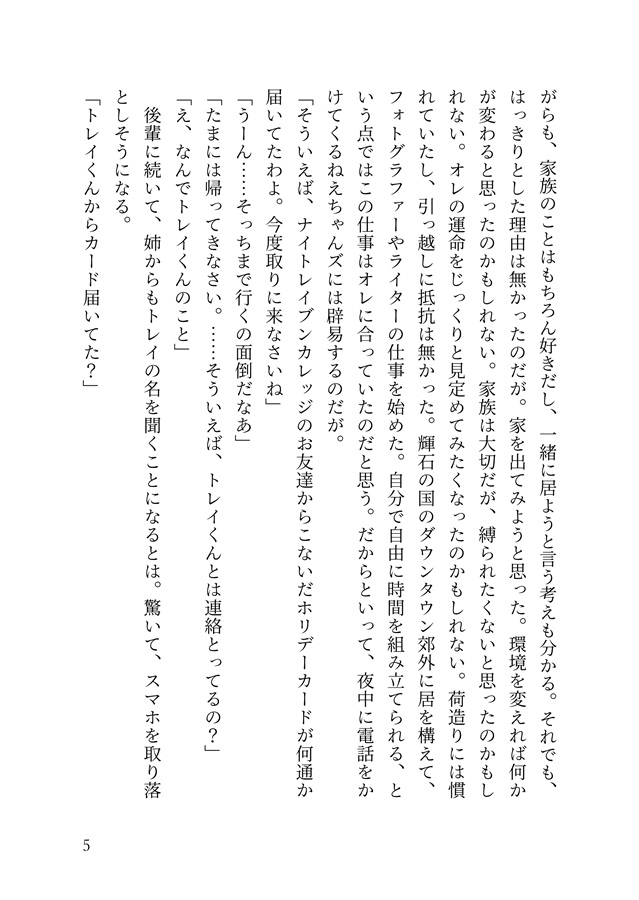 がらも、家族のことはもちろん好きだし、一緒に居ようと言う考えも分かる。それでも、
はっきりとした理由は無かったのだが。家を出てみようと思った。環境を変えれば何か
が変わると思ったのかもしれない。家族は大切だが、縛られたくないと思ったのかもし
れない。オレの運命をじっくりと見定めてみたくなったのかもしれない。荷造りには慣
れていたし、引っ越しに抵抗は無かった。輝石の国のダウンタウン郊外に居を構えて、
フォトグラファーやライターの仕事を始めた。自分で自由に時間を組み立てられる、と
いう点ではこの仕事はオレに合っていたのだと思う。だからといって、夜中に電話をか
けてくるねえちゃんズには辟易するのだが。
「そういえば、ナイトレイブンカレッジのお友達からこないだホリデーカードが何通か
届いてたわよ。今度取りに来なさいね」
「うーん……そっちまで行くの面倒だなあ」
「たまには帰ってきなさい。……そういえば、トレイくんとは連絡とってるの？」
「え、なんでトレイくんのこと」
後輩に続いて、姉からもトレイの名を聞くことになるとは。驚いて、スマホを取り落
としそうになる。
「トレイくんからカード届いてた？」
5